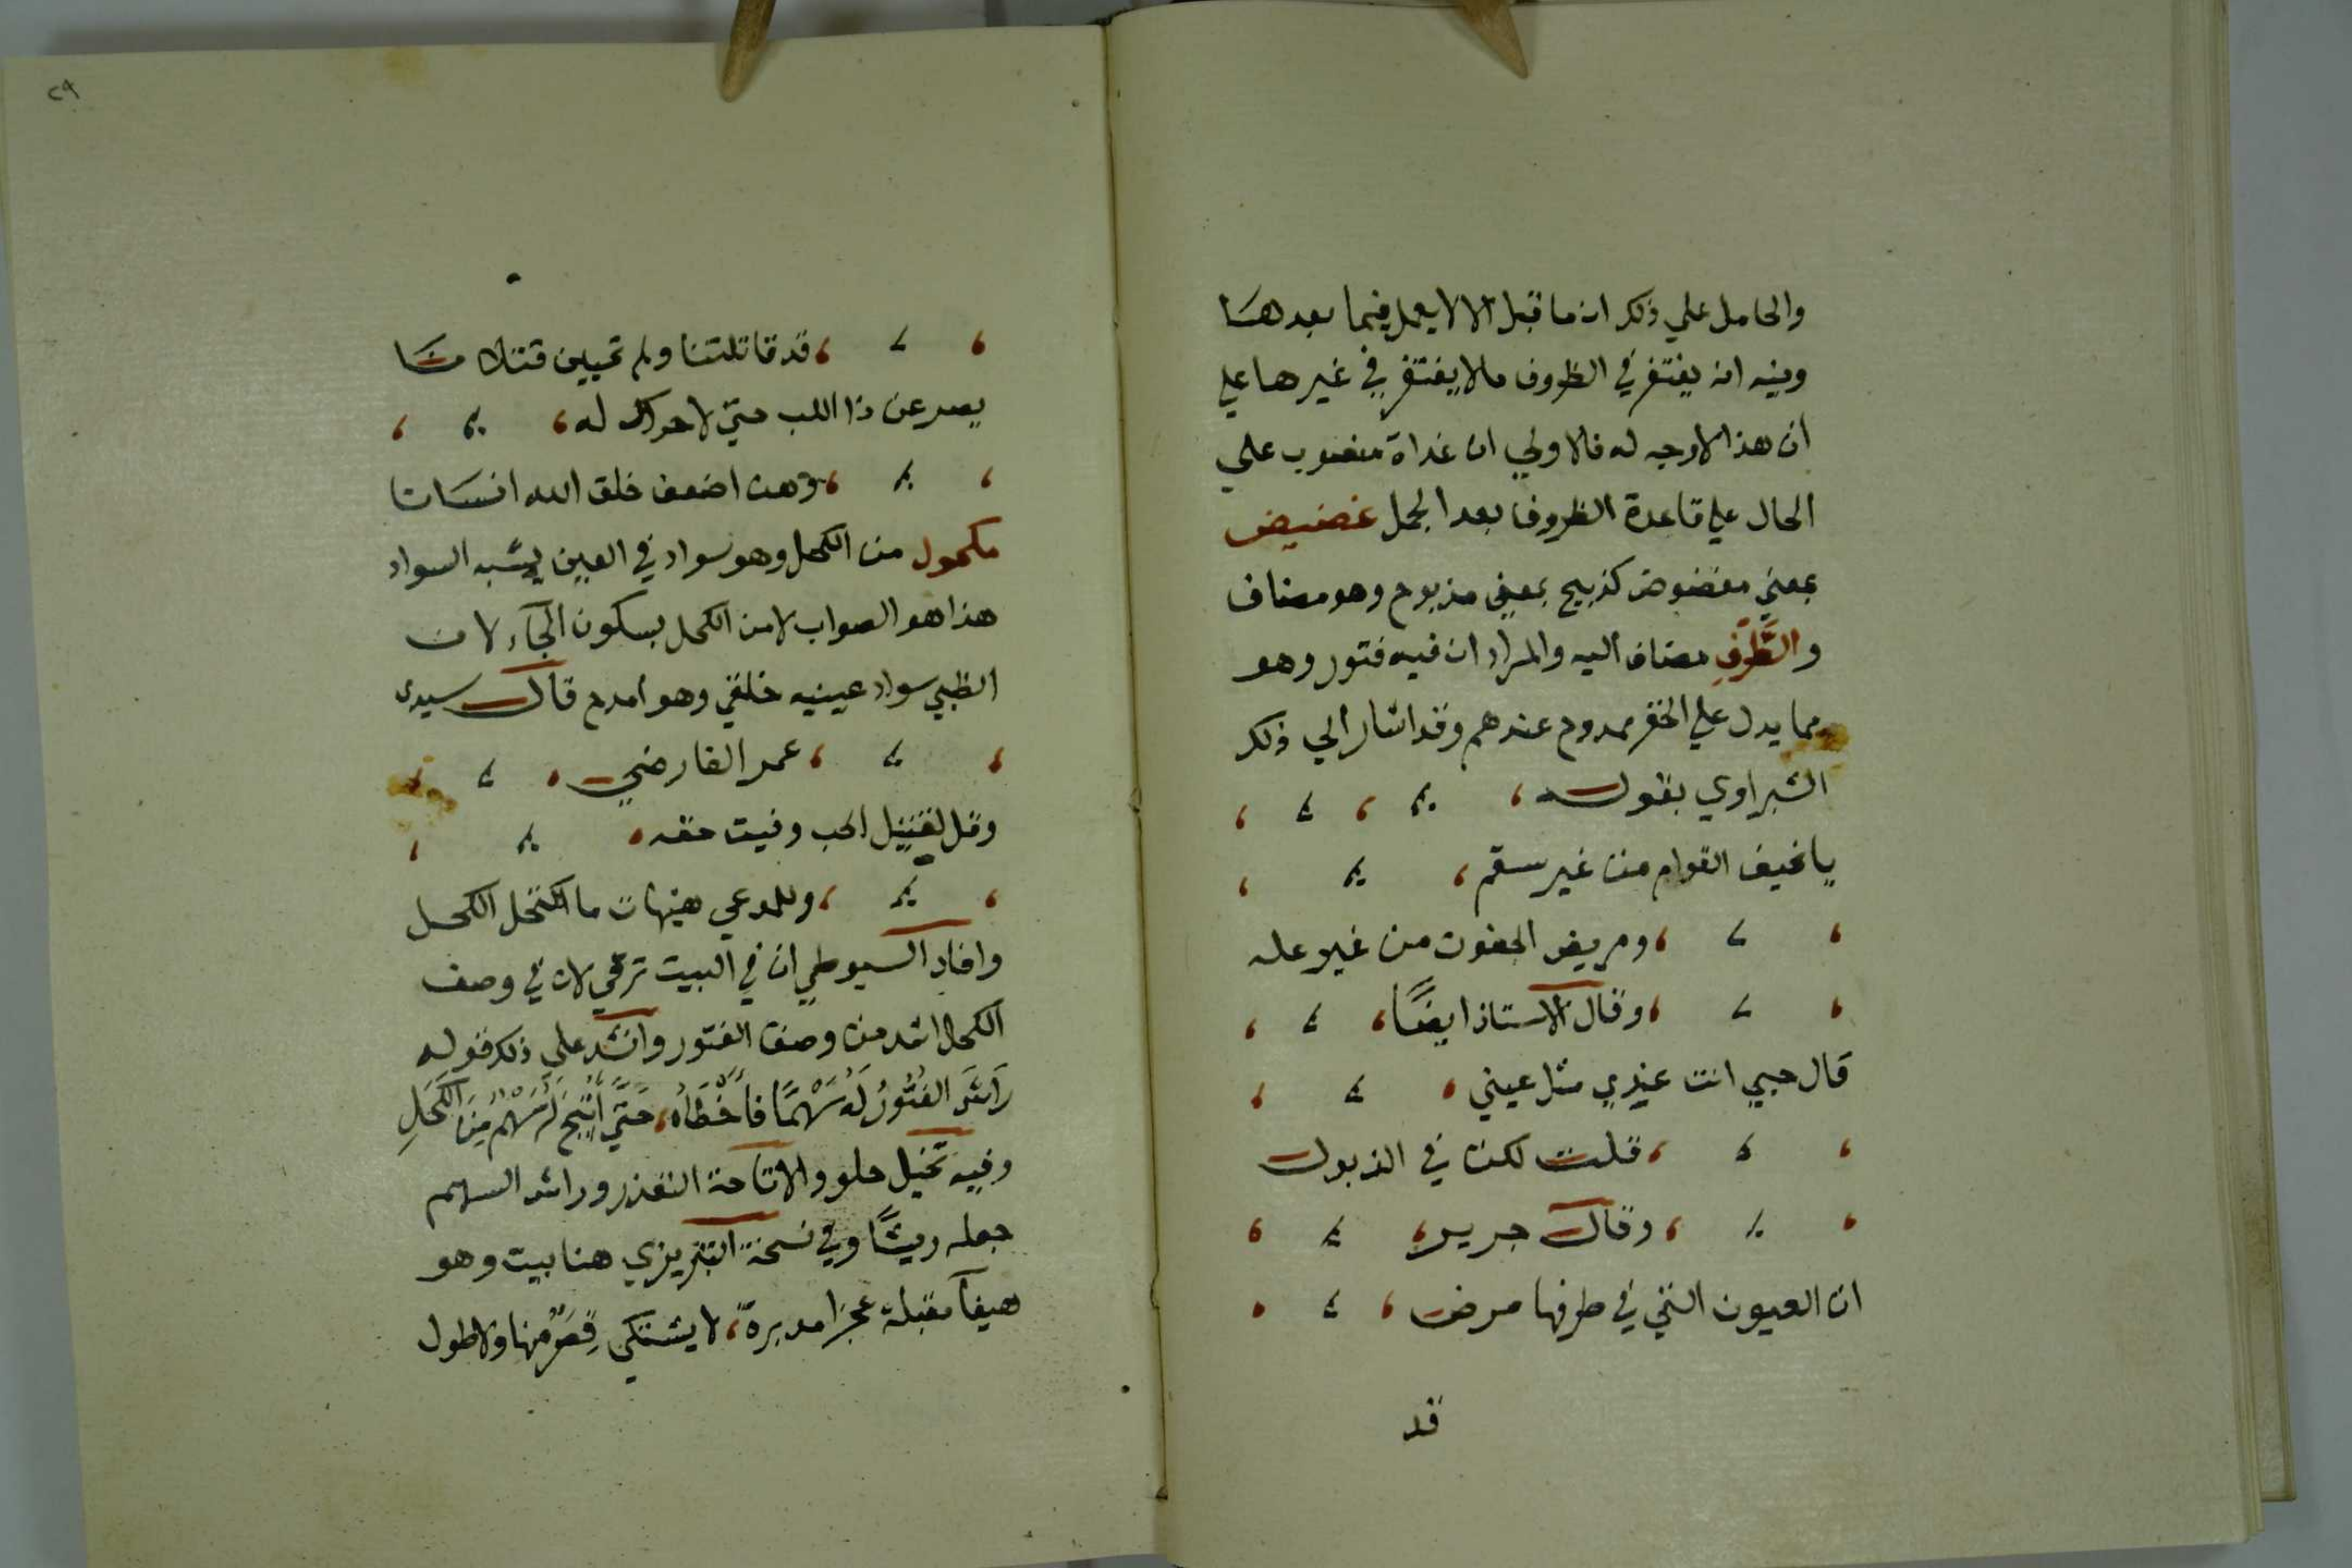 والحامل علي ذلك ان ما قبل الا لا يعمل فيما بعدها
وفيه انه يغتفر في الظروف ما لا يغتفر في غيرها علي
ان هذا لا وجه له فالاولي ان غداة منصوب علي
الحال علي قاعدة الظروف بعد الجمل غضيض
بمعني مغضوض كذبيح بمعني مذبوح وهو مضاف
والطرف مضاف اليه والمراد ان فيه فتور وهو
مما يدل علي الخفر ممدوح عندهم وقد اشار الي ذلك
الشبراوي بقوله
يا نحيف القوام من غير سقم
ومريض الجفون من غير عله
وقال الاستاذ ايضًا
قال حبي انت عندي مثل عيني
قلت لكن في الذبول
وقال جرير
ان العيون التي في طرفها مرض
قد
٢٩
قد قاتلتنا ولم تحيين قتلانا
يصرعن ذا اللب حتي لا حراك له
وهن اضعف خلق الله انسانا
مكحول من الكحل وهو سواد في العين يشبه السواد
هذا هو الصواب لا من الكحل بسكون الحاء لان
الظبي سواد عينيه خلقي وهو امدح قال سيدي
عمر الفارضي
وقل لقتيل الحب وفيت حقه
وللمدعي هيهات ما الكحل الكحل
وافاد السيوطي ان في البيت ترقي لان في وصف
الكحل اشد من وصف الفتور وانشد علي ذلك قوله
رَاشَ الفُتُورُ لَهُ سَهْمًا فأَخْطَأهُ، حَتَّي أُتِيحَ لَهُ سَهْمٌ مِنَ الكَحَلِ
وفيه تخيل حلو والاتاحة التقدر وراش السهم
جعله ريشًا وفي نسخة التبريزي هنا بيت وهو
هيفآ مقبلة عجزا مدبرة، لا يشتكي قِصَرٌ منها ولا طول